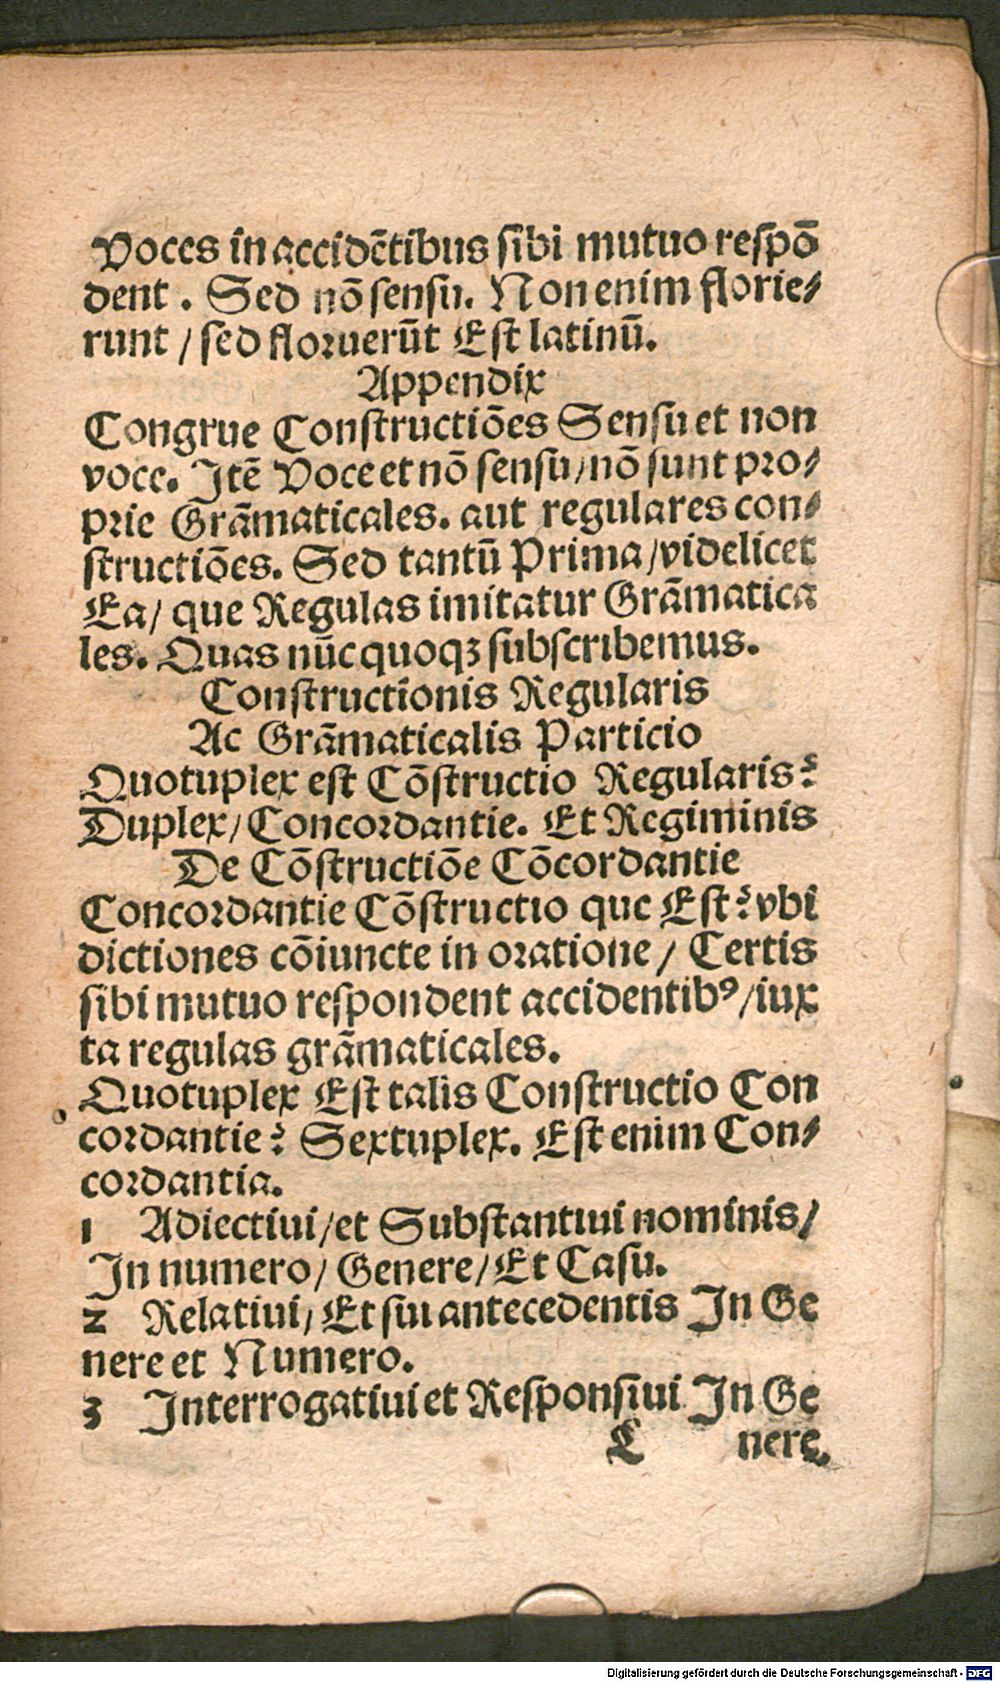 Voces in accidētibus sibi mutuo respō
dent. Sed nō sensu. Non enim florie⸗
runt / sed floruerūt Est latinū.
Appendix
Congrue Constructiōes Sensu et non
voce. Itē Voce et nō sensu / nō sunt pro⸗
prie Grāmaticales. aut regulares con⸗
structiōes. Sed tantū Prima / videlicet
Ea / que Regulas imitatur Grāmatica
les. Quas nūc quoqꝫ subscribemus.
Constructionis Regularis
Ac Grāmaticalis Particio
Quotuplex est Cōstructio Regularis?
Duplex / Concordantie. Et Regiminis
De Cōstructiōe Cōcordantie
Concordantie Cōstructio que Est? vbi
dictiones cōiuncte in oratione / Certis
sibi mutuo respondent accidentibꝰ / iux
ta regulas grāmaticales.
Quotuplex Est talis Constructio Con
cordantie? Sextuplex. Est enim Con⸗
cordantia.
1 Adiectiui / et Substantiui nominis /
In numero / Genere / Et Casu.
2 Relatiui / Et sui antecedentis In Ge
nere et Numero.
3 Interrogatiui et Responsiui In Ge
C nere.
Digitalisierung gefördert durch die Deutsche Forschungsgemeinschaft - DFG